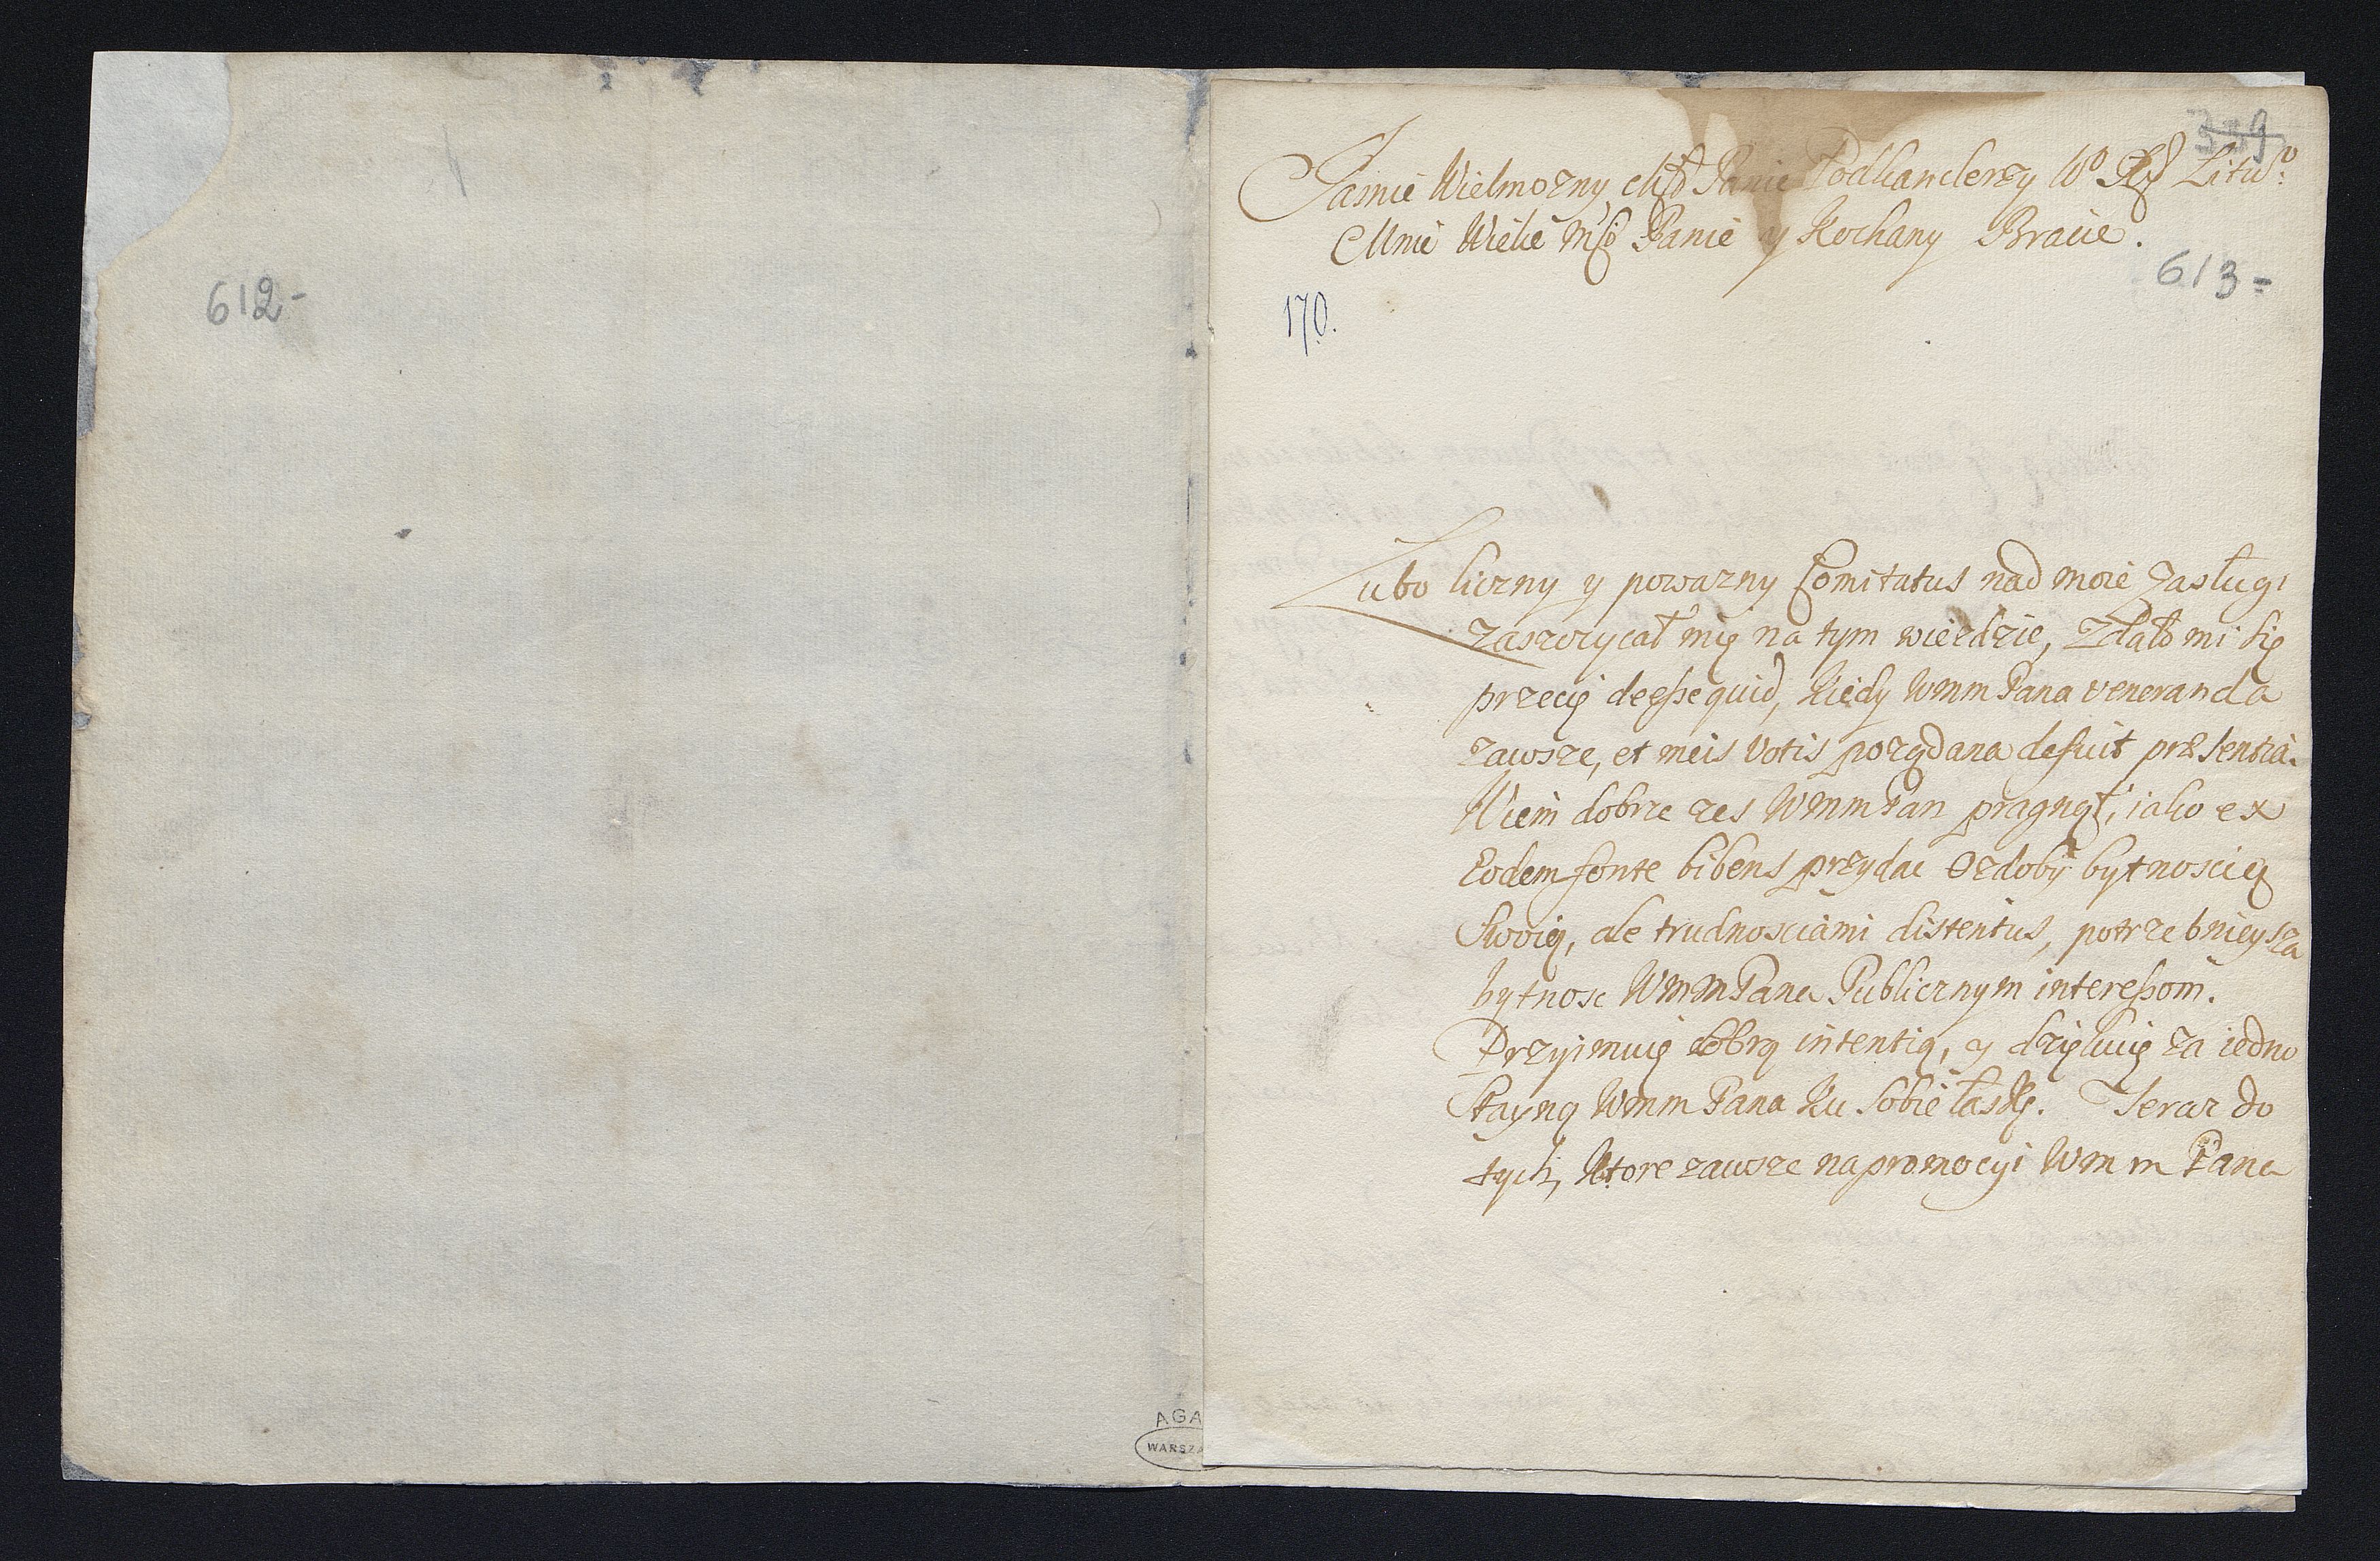 612-
AGA
WARSZA
339
Jasnie Wielmozny Mśc Panie Podkanclerzy Wº Xª Lituº:
Mnie Wielce Mśc Panie y Kochany Bracie.
613=
170.
Lubo liczny y powazny Comitatus nad moie zasługi
zaszczycał mię na tym wiezdzie, zdało mi się
przecię deesse quid, kiedy WmmPana veneranda
zawsze, et meis votis porządana defuit præsentia.
Wiem dobrze zes WmmPan pragnął, iako ex
Eodem fonte bibens przydac ozdoby bytnoscią
Swoią, ale trudnosciami distentus, potrzebnieysza
bytnosc WmmPana Publicznym interessom.
Przyimuię dobrą intentią, y dziękuię za iedno
stayną WmmPana ku sobie łaskę. Teraz do
tych, ktore zawsze na promocyi Wmm Pana